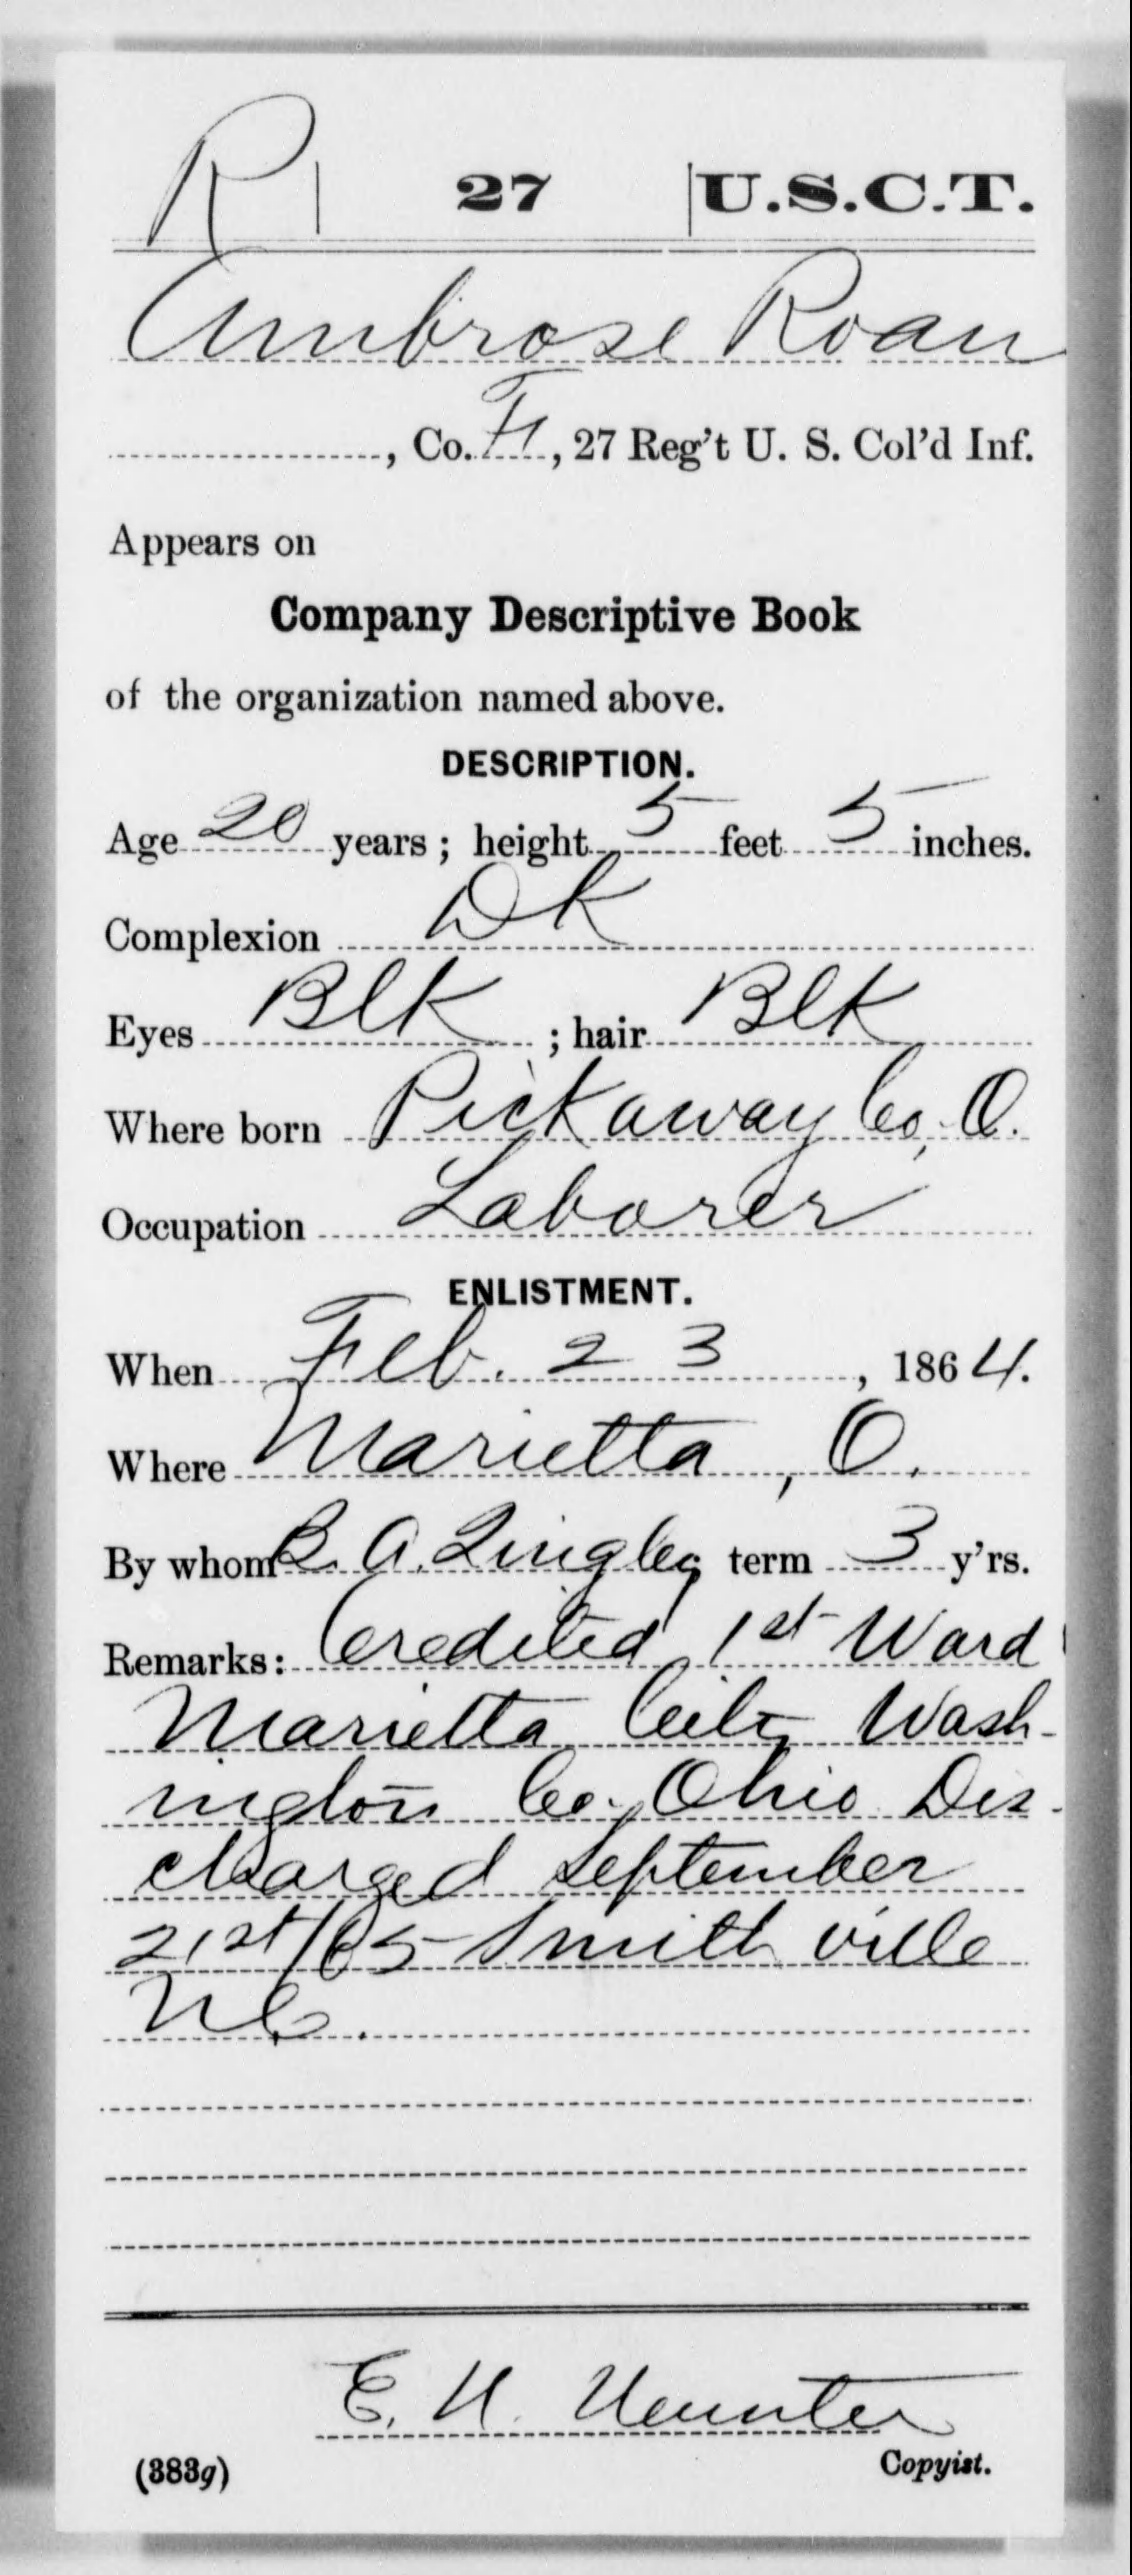 R | 27 | U.S.C.T.
Ambrose Roan
, Co. F, 27 Reg't U. S. Col'd Inf.
Appears on
Company Descriptive Book
of the organization named above.
DESCRIPTION.
Age 20 years; height 5 feet 5 inches.
Complexion Dk
Eyes Blk ; hair Blk
Where born Pickaway Co, O.
Occupation Laborer
ENLISTMENT.
When Feb. 23, 1864.
Where Marietta, O.
By whom A. term 3 y'rs.
Remarks: Credited 1st Ward
Marietta City Wash-
ington Co. Ohio Dis-
charged September
21st/65 Smithville
NC.
E. H.
Copyist.
(383g)